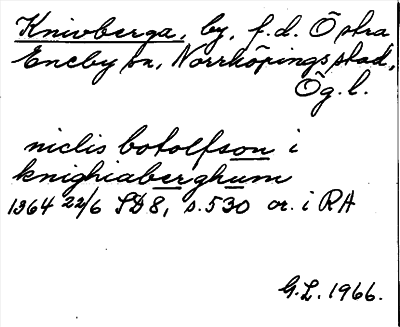 Knivberga, by, f.d. Östra
Eneby sn, Norrköpings stad,
Ög. l.
niclis botolfson i
knighiaberghum
1364 22/6 SD 8, s. 530 or. i RA
G.L. 1966.